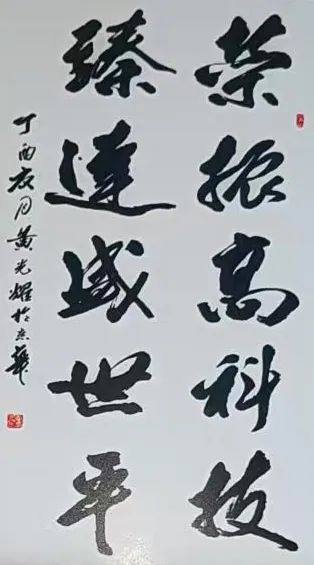 荣振高科技
臻达盛世平
丁酉夜月黄光耀於京华